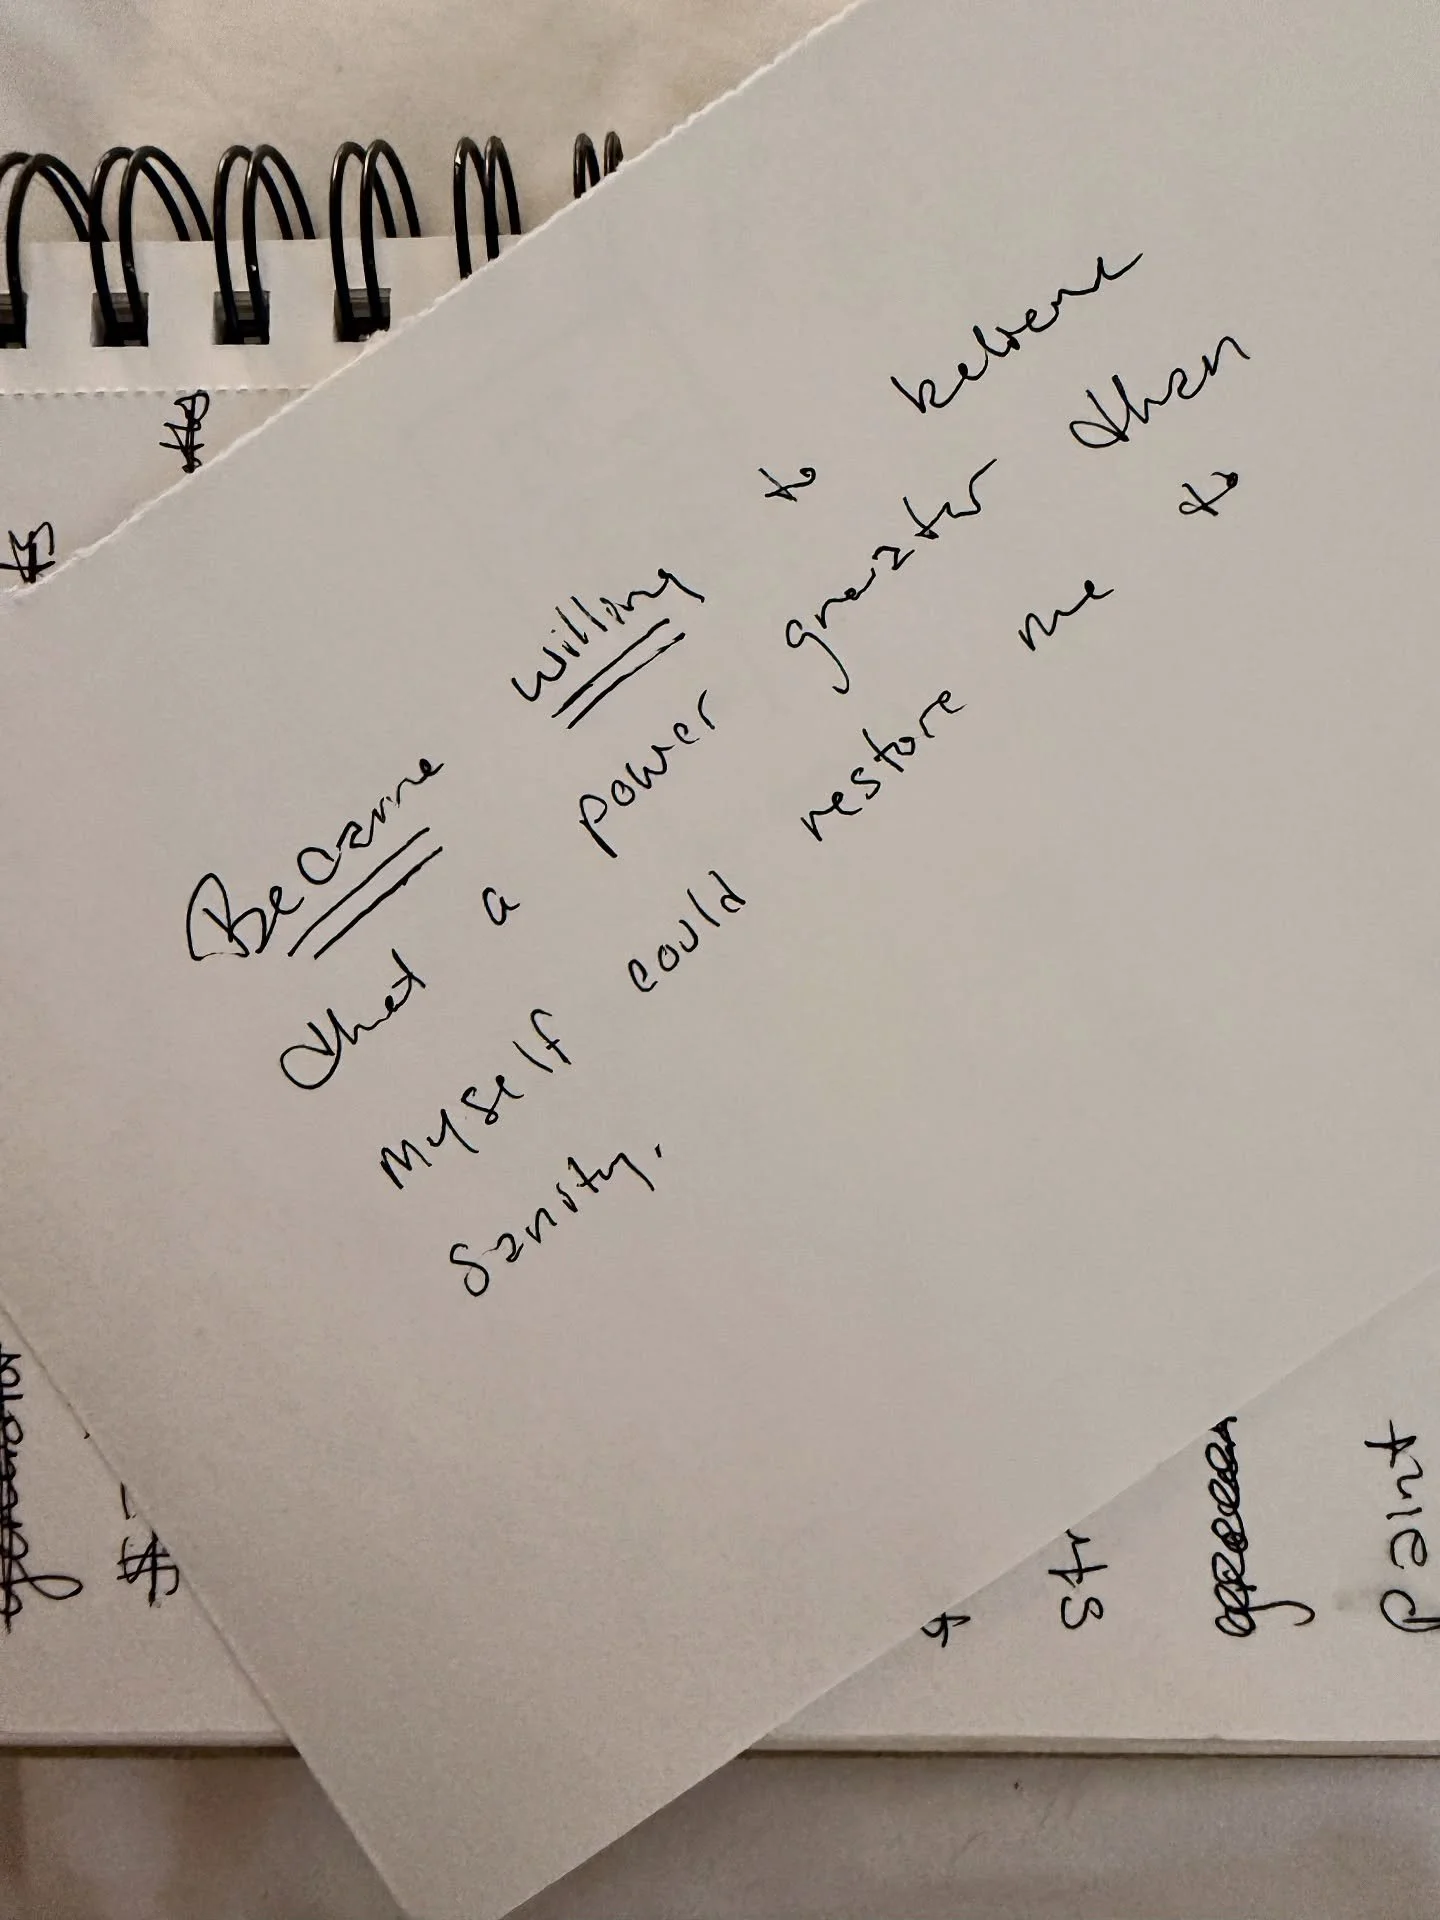 Became willing to believe
that a power greater than
myself could restore me to
sanity.
$
str
paint